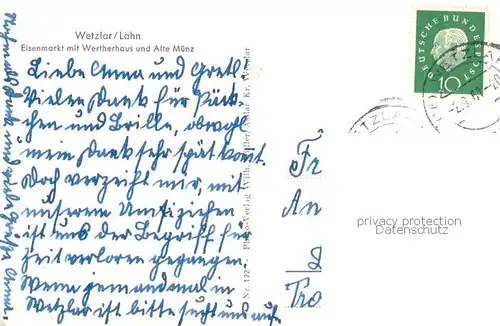 Wetzlar/Lahn
Eisenmarkt mit Wertherhaus und Alte Münz
Liebe Anna und Gretl
Vielen Dank für Päck-
chen und Brille, obwohl
mein Dank sehr spät komt.
Doch verzeiht mir, mit
unserem Umsiziehen
ist uns der Begriff für
Zeit verloren gegangen
Wenn jemand mal in
Wetzlar ist bitte sucht uns auf.
Nochmals Dank und viele Grüße Anna.
DEUTSCHE BUNDESPOST
10
Fr
An
Tro
privacy protection
Datenschutz